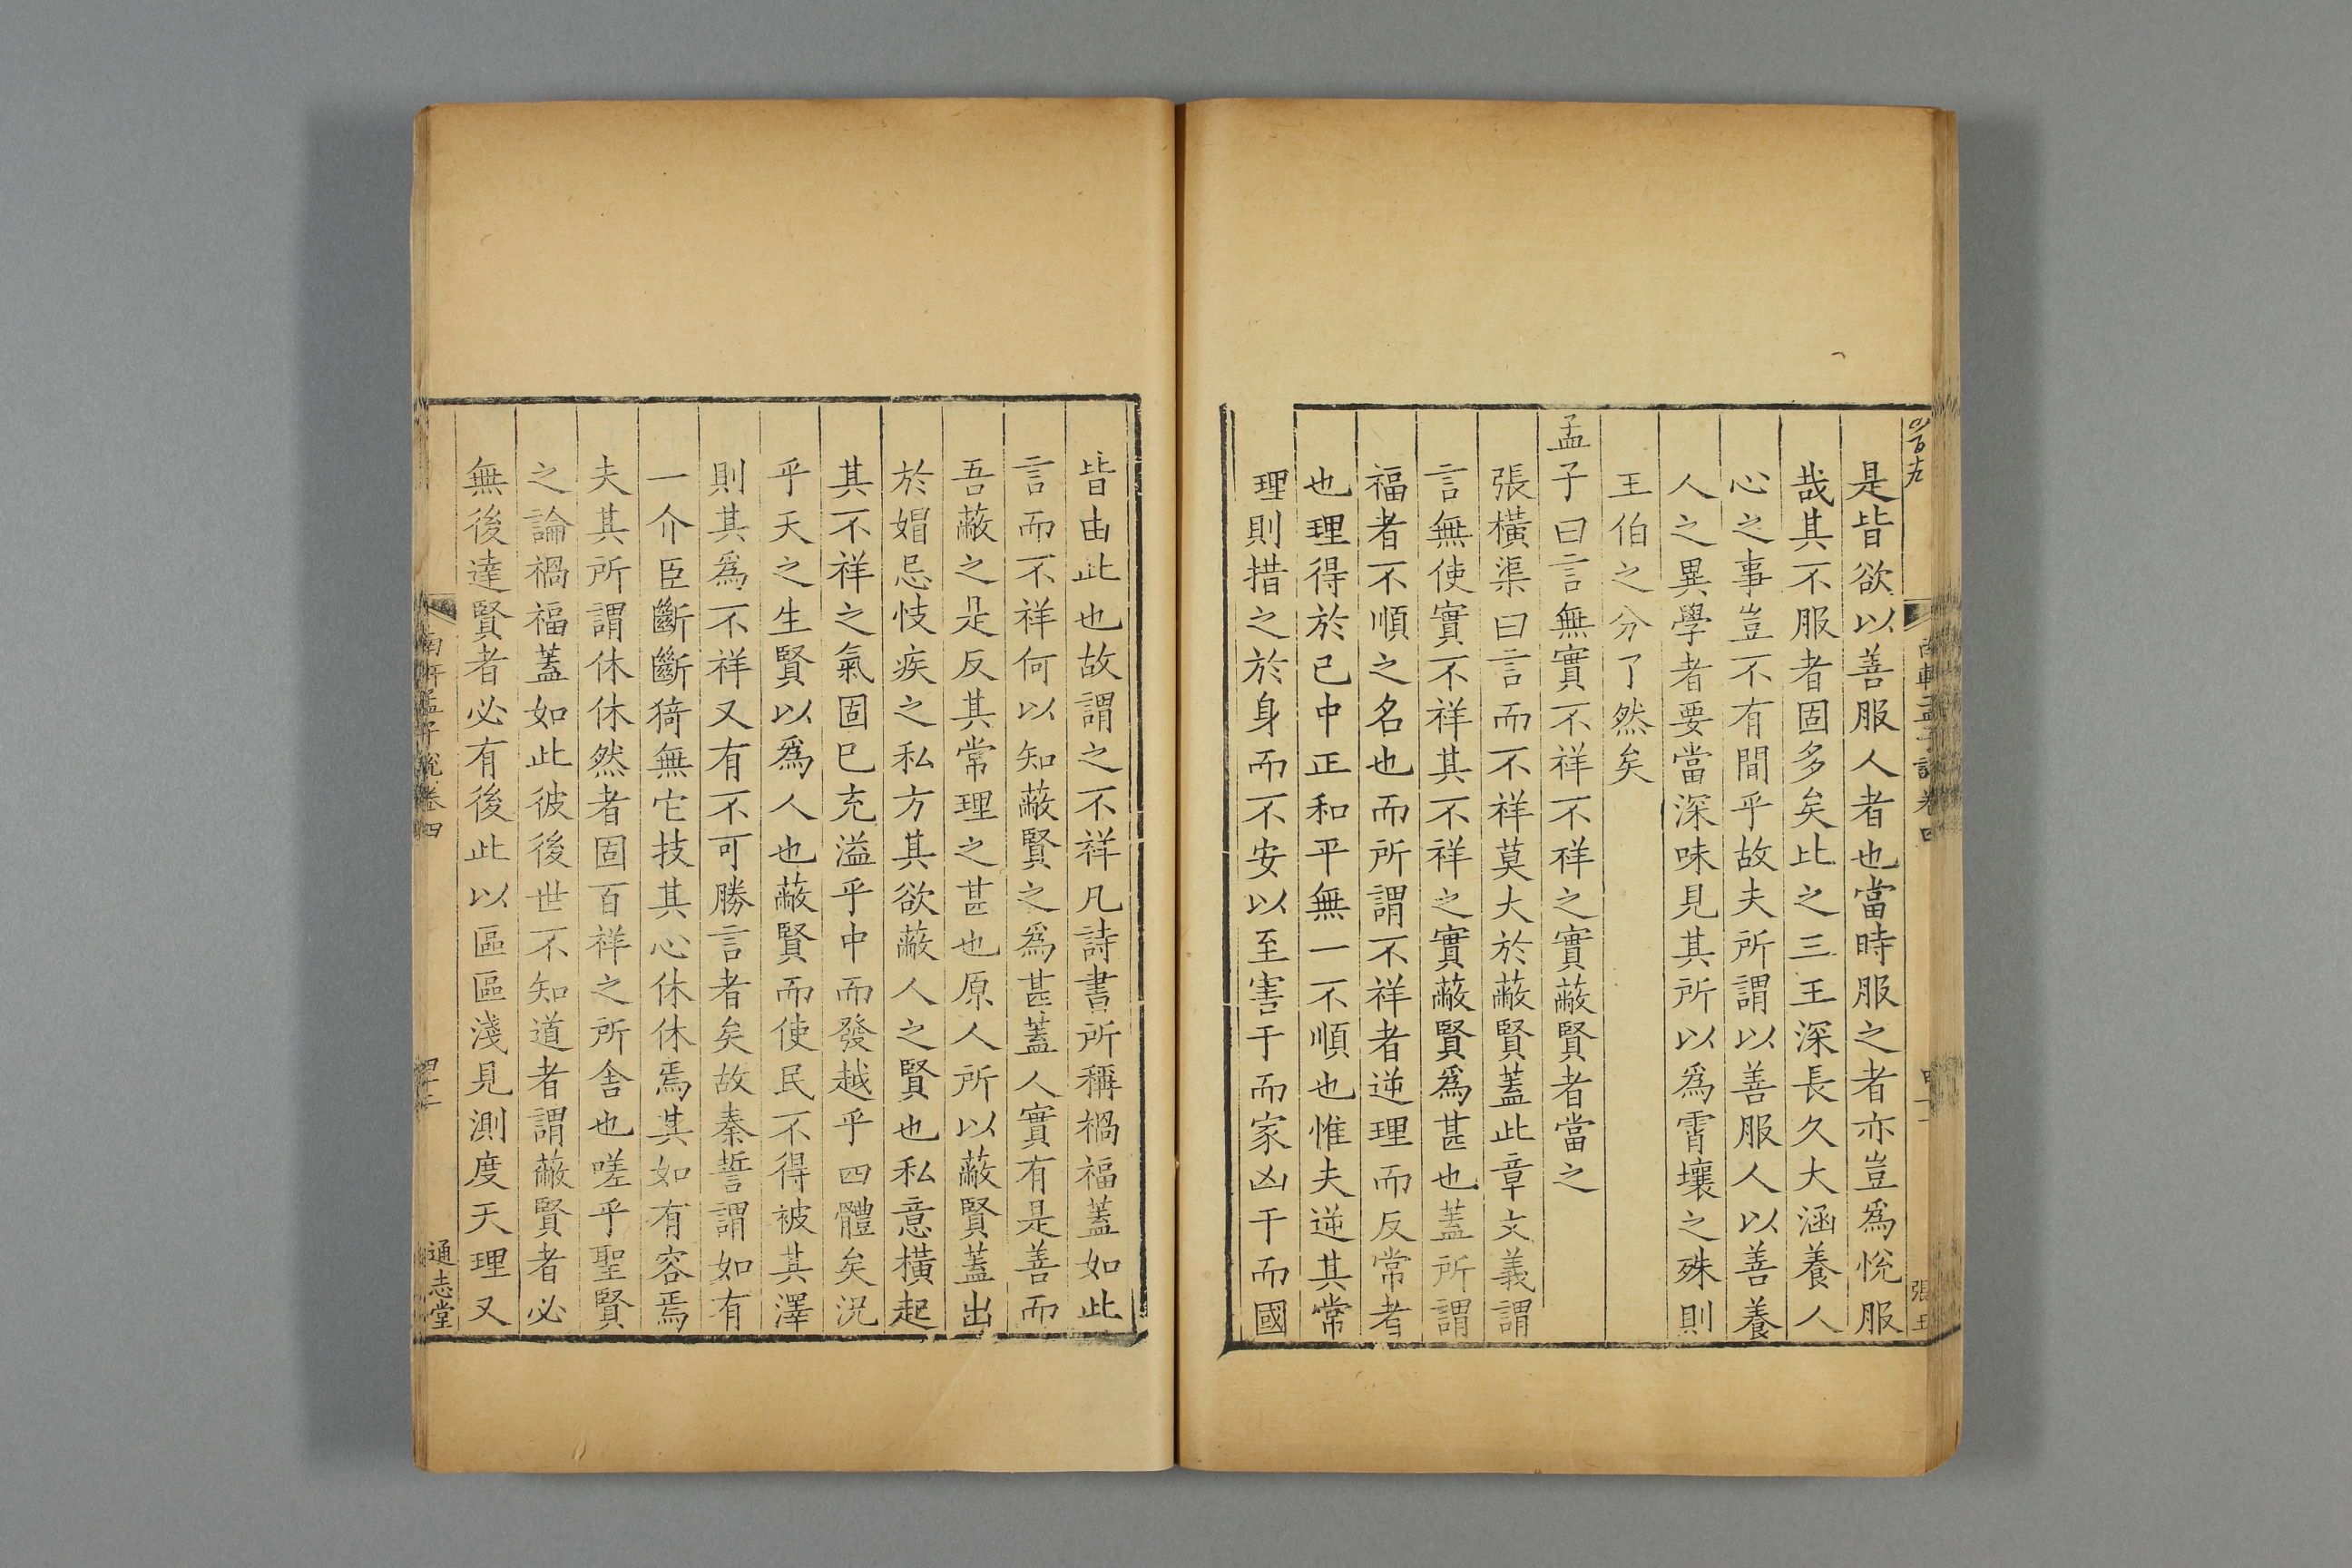 是皆欲以善服人者也當時服之者亦豈爲恱服
哉其不服者固多矣比之三王深長久大涵養人
心之事豈不有間乎故夫所謂以善服人以善養
人之異學者要當深味見其所以爲霄壤之殊則
王伯之分了然矣
孟子曰言無實不祥不祥之實蔽賢者當之
張橫渠曰言而不祥莫大於蔽賢蓋此章文義謂
言無使實不祥其不祥之實蔽賢爲甚也蓋所謂
福者不順之名也而所謂不祥者逆理而反常者
也理得於已中正和平無一不順也惟夫逆其常
理則措之於身而不安以至害于而家凶于而國
皆由此也故謂之不祥凡詩書所稱禍福蓋如此
言而不祥何以知蔽賢之爲甚蓋人實有是善而
吾蔽之是反其常理之甚也原人所以蔽賢蓋出
於娼忌忮疾之私方其欲蔽人之賢也私意橫起
其不祥之氣固已充溢乎中而發越乎四體矣況
乎天之生賢以爲人也蔽賢而使民不得被其澤
則其爲不祥又有不可勝言者矣故秦誓謂如有
一介臣斷斷猗無它技其心休休焉其如有容焉
夫其所謂休休然者固百祥之所舍也嗟乎聖賢
之論禍福蓋如此彼後世不知道者謂蔽賢者必
無後達賢者必有後此以區區淺見測度天理又
南軒孟子說卷四
通志堂